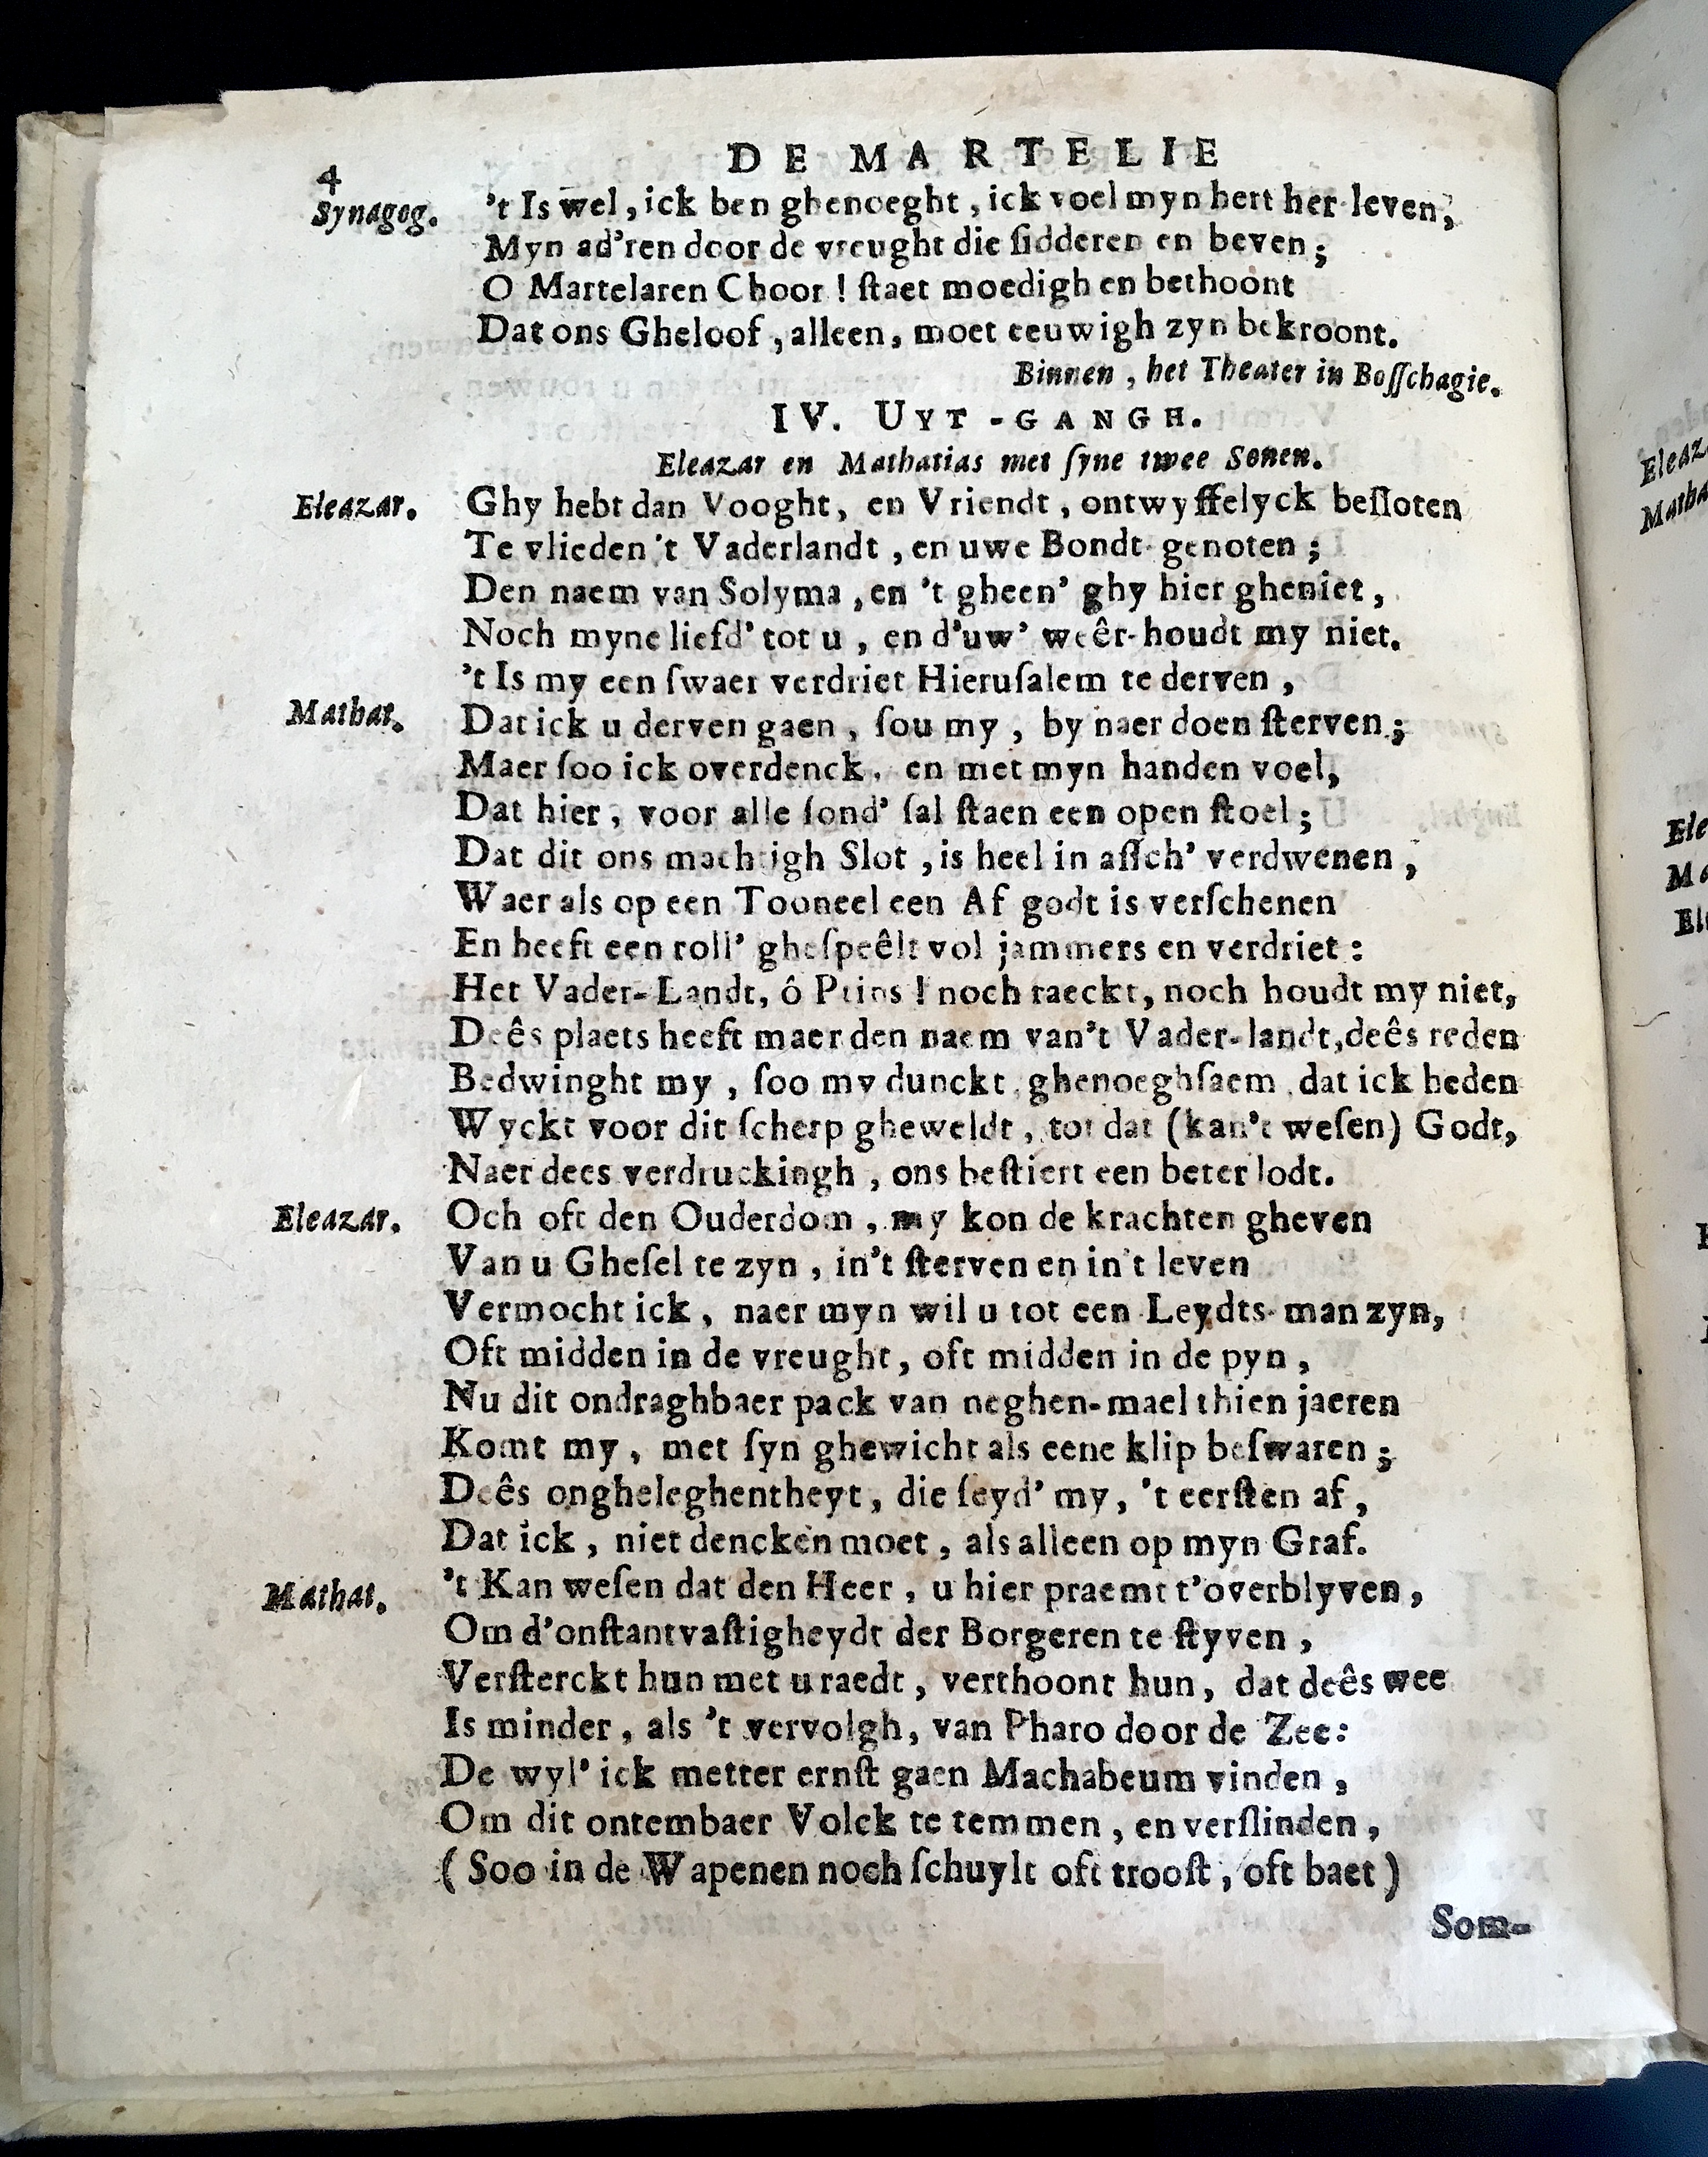 DE MARTELIE
4
Synagog. 't Is wel, ick ben ghenoeght, ick voel myn hert her-leven,
Myn ad'ren door de vreught die ſidderen en beven;
O Martelaren Choor! ſtaet moedigh en bethoont
Dat ons Gheloof, alleen, moet eeuwigh zyn bekroont.
Binnen, het Theater in Boſſchagie.
IV. UYT-GANGH.
Eleazar en Mathatias met ſyne twee Sonen.
Eleazar. Ghy hebt dan Vooght, en Vriendt, ontwyffelyck beſloten
Te vlieden 't Vaderlandt, en uwe Bondt-genoten;
Den naem van Solyma, en 't gheen' ghy hier gheniet,
Noch myne liefd' tot u, en d'uw' weêr-houdt my niet.
't Is my een ſwaer verdriet Hieruſalem te derven,
Mathat. Dat ick u derven gaen, ſou my, by naer doen ſterven;
Maer ſoo ick overdenck, en met myn handen voel,
Dat hier, voor alle ſond' ſal ſtaen een open ſtoel;
Dat dit ons machtigh Slot, is heel in aſſch' verdwenen,
Waer als op een Tooneel een Af godt is verſchenen
En heeft een roll' gheſpeêlt vol jammers en verdriet:
Het Vader-Landt, ô Prins! noch raeckt, noch houdt my niet,
Deês plaets heeft maer den naem van't Vader-landt, deês reden
Bedwinght my, ſoo my dunckt, ghenoeghſaem, dat ick heden
Wyckt voor dit ſcherp gheweldt, tot dat (kan't weſen) Godt,
Naer dees verdruckingh, ons beſtiert een beter lodt.
Eleazar. Och oft den Ouderdom, my kon de krachten gheven
Van u Gheſel te zyn, in't ſterven en in't leven
Vermocht ick, naer myn wil u tot een Leydts-man zyn,
Oft midden in de vreught, oft midden in de pyn,
Nu dit ondraghbaer pack van neghen-mael thien jaeren
Komt my, met ſyn ghewicht als eene klip beſwaren;
Deês ongheleghentheyt, die ſeyd' my, 't eerſten af,
Dat ick, niet dencken moet, als alleen op myn Graf.
Mathat. 't Kan weſen dat den Heer, u hier praemt t'overblyven,
Om d'onſtantvaſtigheydt der Borgeren te ſtyven,
Verſterckt hun met u raedt, verthoont hun, dat deês wee
Is minder, als 't vervolgh, van Pharo door de Zee:
De wyl' ick metter ernſt gaen Machabeum vinden,
Om dit ontembaer Volck te temmen, en verſlinden,
(Soo in de Wapenen noch ſchuylt oft trooſt, oft baet)
Som-